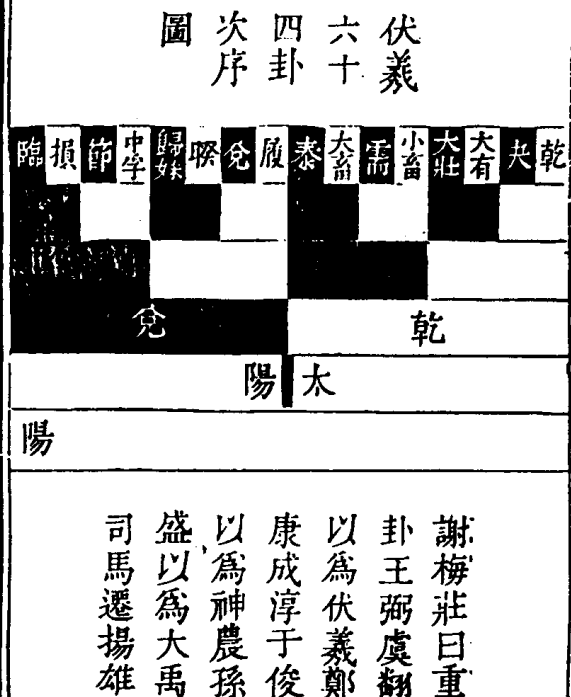 伏羲
六十
四卦
次序
圖
乾
夬
大有
大壯
小畜
需
大畜
泰
履
兌
睽
歸妹
中孚
節
損
臨
乾
兌
太陽
陽
謝梅莊曰重
卦王弼虞翻
以爲伏羲鄭
康成淳于俊
以爲神農孫
盛以爲大禹
司馬遷揚雄